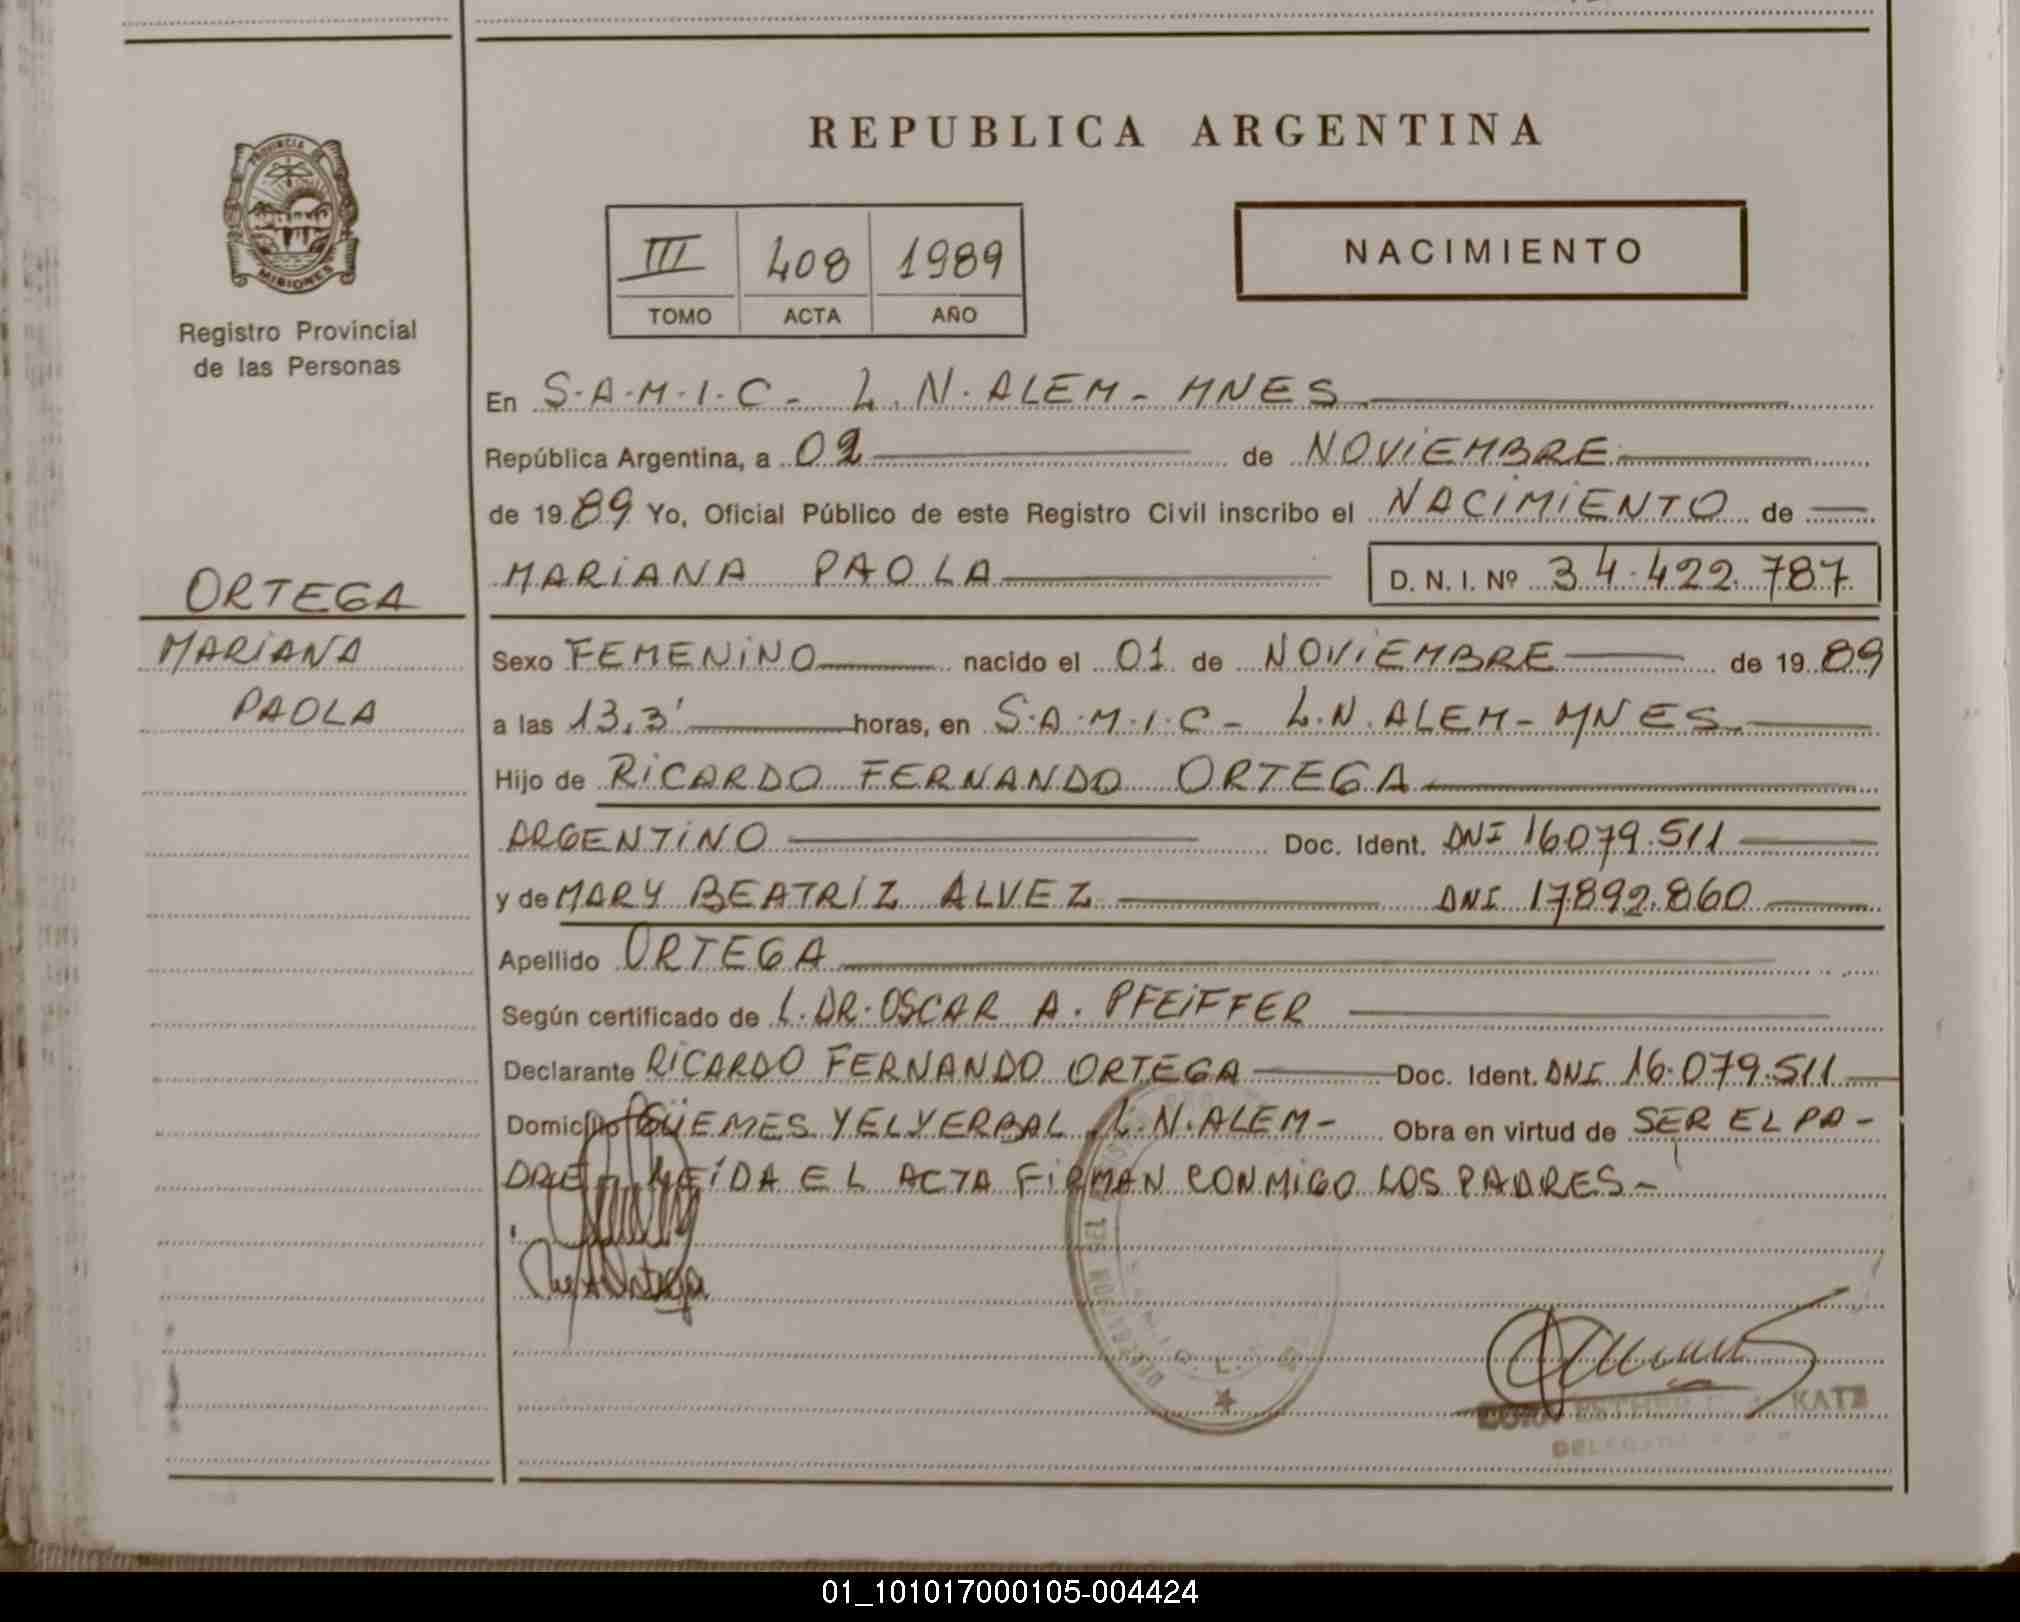 REPUBLICA ARGENTINA
PROVINCIA DE
MISIONES
Registro Provincial
de las Personas
III 408 1989
TOMO ACTA AÑO
NACIMIENTO
En S.A.M.I.C - L.N. ALEM - MNES
República Argentina, a 02 de NOVIEMBRE
de 1989 Yo, Oficial Público de este Registro Civil inscribo el NACIMIENTO de
MARIANA PAOLA D. N. I. Nº 34.422.787
ORTEGA
MARIANA
PAOLA
Sexo FEMENINO nacido el 01 de NOVIEMBRE de 1989
a las 13,3' horas, en S.A.M.I.C - L.N. ALEM - MNES
Hijo de RICARDO FERNANDO ORTEGA
ARGENTINO Doc. Ident. DNI 16079.511
y de MARY BEATRIZ ALVEZ DNI 17892.860
Apellido ORTEGA
Según certificado de L. DR. OSCAR A. PFEIFFER
Declarante RICARDO FERNANDO ORTEGA Doc. Ident. DNI 16.079.511
Domicilio GÜEMES Y EL YERBAL L.N. ALEM - Obra en virtud de SER EL PA-
DRE - LEÍDA EL ACTA FIRMAN CONMIGO LOS PADRES -
KATZ
01_101017000105-004424